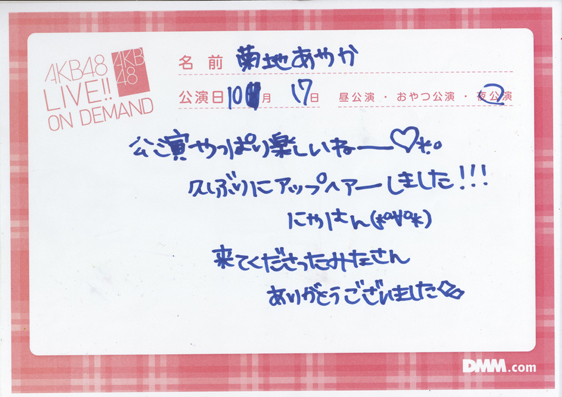 AKB48
LIVE!!
ON DEMAND
AKB
48
名前 菊地あやか
公演日 10月 17日 昼公演・おやつ公演・夜公演
公演やっぱり楽しいねー♡*。
久しぶりにアップヘアーしました!!!
にゃはむん(*°∀°*)
来てくださったみなさん
ありがとうございました
DMM.com